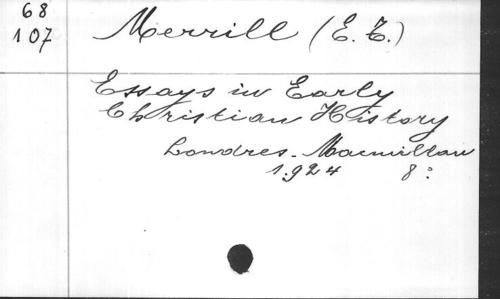 68
107
Merrill (E. T.)
Essays in Early
Christian History
Londres. Macmillan
1.924 8º